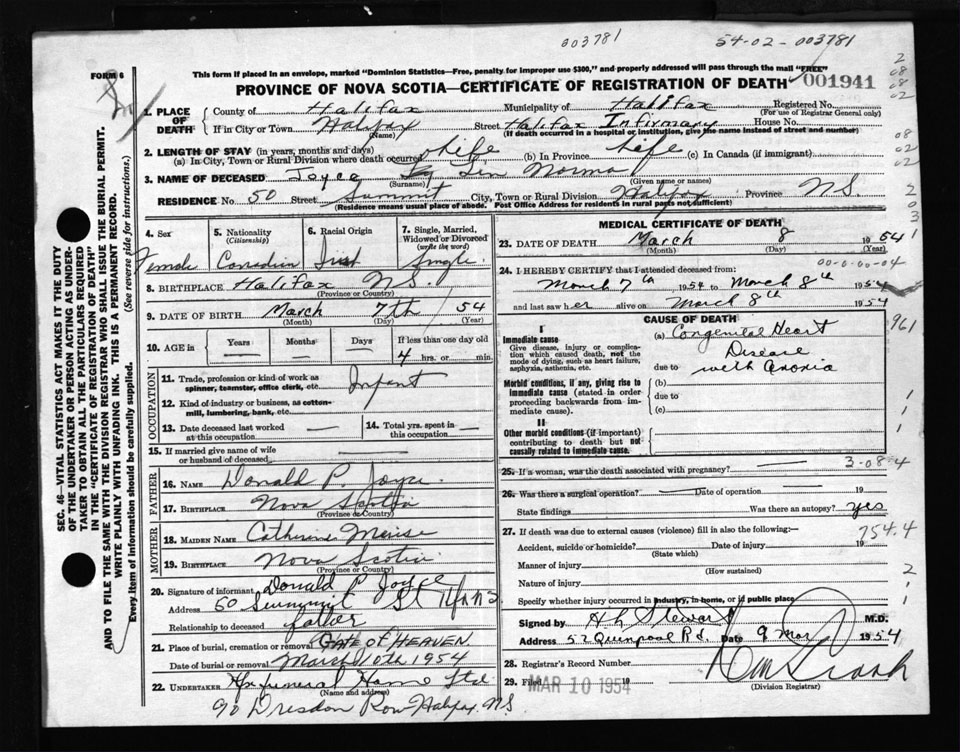 003781
54-02-003781
FORM 6
This form if placed in an envelope, marked "Dominion Statistics—Free, penalty for improper use $300," and properly addressed will pass through the mail "FREE"
PROVINCE OF NOVA SCOTIA—CERTIFICATE OF REGISTRATION OF DEATH
001941
1. PLACE OF DEATH
County of Halifax Municipality of Halifax Registered No.
(For use of Registrar General only)
If in City or Town Halifax Street Halifax Infirmary House No.
(Name) (If death occurred in a hospital or institution, give the name instead of street and number)
2. LENGTH OF STAY (in years, months and days)
(a) In City, Town or Rural Division where death occurred Life (b) In Province Life (c) In Canada (if immigrant)
3. NAME OF DECEASED Joyce Norma
(Surname) (Given name or names)
RESIDENCE No. 50 Street Summit City, Town or Rural Division Halifax Province N.S.
(Residence means usual place of abode. Post Office Address for residents in rural parts not sufficient)
4. Sex
Female
5. Nationality
(Citizenship)
Canadian
6. Racial Origin
Irish
7. Single, Married, Widowed or Divorced
(write the word)
Single
8. BIRTHPLACE Halifax N.S.
(Province or Country)
9. DATE OF BIRTH March 7th 54
(Month) (Day) (Year)
10. AGE in
Years Months Days If less than one day old
4 hrs. or min.
OCCUPATION
11. Trade, profession or kind of work as spinner, teamster, office clerk, etc. Infant
12. Kind of industry or business, as cotton-mill, lumbering, bank, etc.
13. Date deceased last worked at this occupation
14. Total yrs. spent in this occupation
15. If married give name of wife or husband of deceased
FATHER
16. NAME Donald P. Joyce
17. BIRTHPLACE Nova Scotia
(Province or Country)
MOTHER
18. MAIDEN NAME Catherine
19. BIRTHPLACE Nova Scotia
(Province or Country)
20. Signature of informant Donald P Joyce
Address 50 Summit St
Relationship to deceased father
21. Place of burial, cremation or removal GATE OF HEAVEN
Date of burial or removal March 10th 1954
22. UNDERTAKER Funeral Home Ltd
(Name and address)
90 Dresden Row Halifax NS
MEDICAL CERTIFICATE OF DEATH
23. DATE OF DEATH March 8 1954
(Month) (Day) (Year)
24. I HEREBY CERTIFY that I attended deceased from:
March 7th 1954 to March 8th 1954
and last saw her alive on March 8th 1954
CAUSE OF DEATH
I
Immediate cause
Give disease, injury or complication which caused death, not the mode of dying, such as heart failure, asphyxia, asthenia, etc.
(a) Congenital Heart
Disease
due to with anoxia
Morbid conditions, if any, giving rise to immediate cause (stated in order proceeding backwards from immediate cause).
(b)
due to
(c)
II
Other morbid conditions (if important) contributing to death but not causally related to immediate cause.
25. If a woman, was the death associated with pregnancy?
3-08-4
26. Was there a surgical operation? Date of operation 19
State findings Was there an autopsy? yes
27. If death was due to external causes (violence) fill in also the following:—
754.4
Accident, suicide or homicide? Date of injury 19
(State which)
Manner of injury
(How sustained)
Nature of injury
Specify whether injury occurred in industry, in home, or in public place
Signed by H L Stewart M.D.
Address 52 Quinpool Rd. Date 9 Mar 1954
28. Registrar's Record Number
29. MAR 10 1954 19
(Division Registrar)
SEC. 46—VITAL STATISTICS ACT MAKES IT THE DUTY
OF THE UNDERTAKER OR PERSON ACTING AS UNDERTAKER
TO OBTAIN ALL THE PARTICULARS REQUIRED
IN THE "CERTIFICATE OF REGISTRATION OF DEATH"
AND TO FILE THE SAME WITH THE DIVISION REGISTRAR WHO SHALL ISSUE THE BURIAL PERMIT.
WRITE PLAINLY WITH UNFADING INK. THIS IS A PERMANENT RECORD.
Every item of information should be carefully supplied. (See reverse side for instructions.)